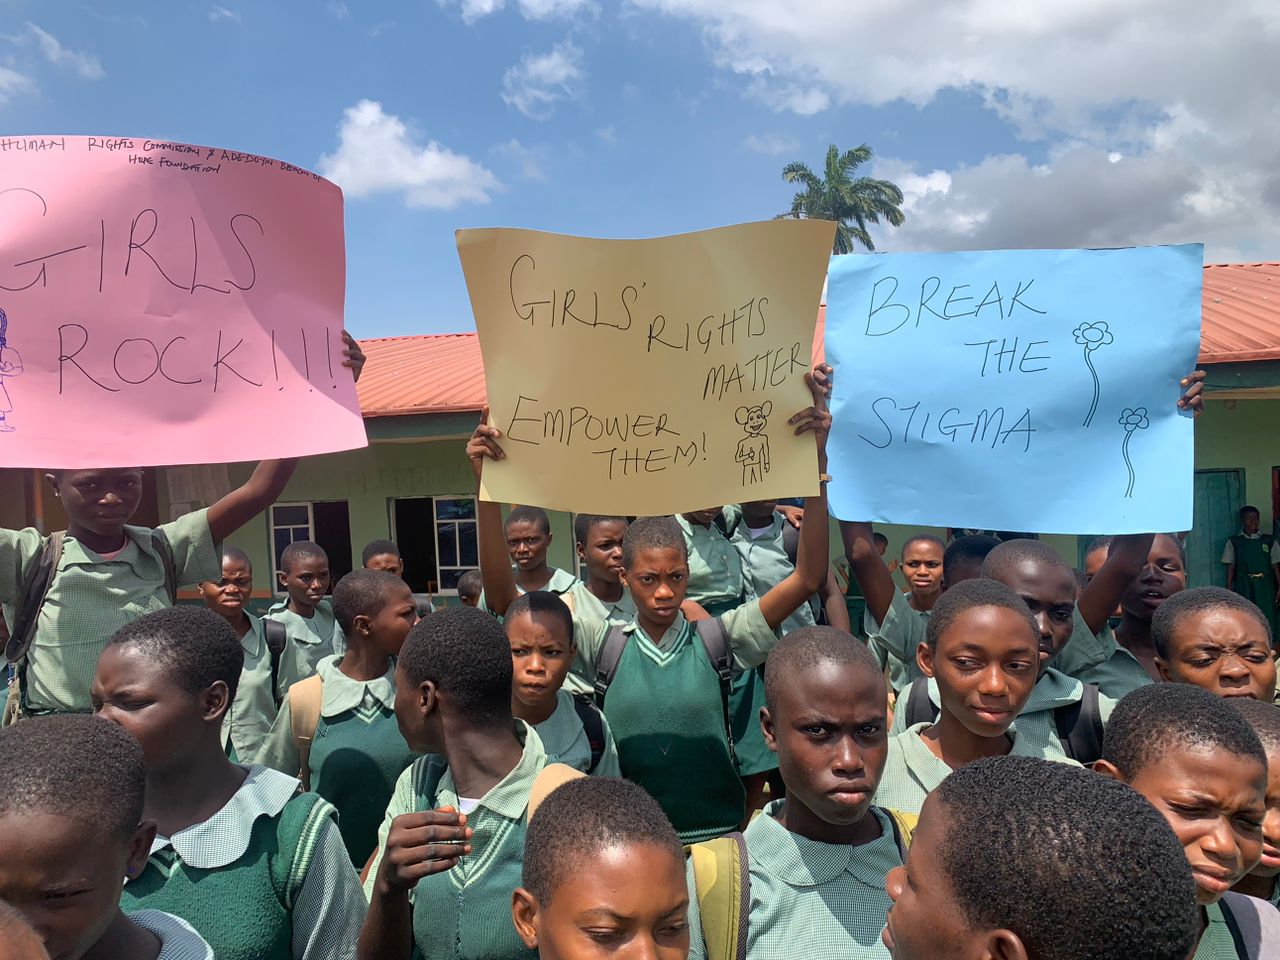 HUMAN RIGHTS COMMISSION & ADEDOYIN BEACON OF
HOPE FOUNDATION
GIRLS
ROCK!!!
GIRLS' RIGHTS
MATTER
EMPOWER
THEM!
BREAK
THE
STIGMA